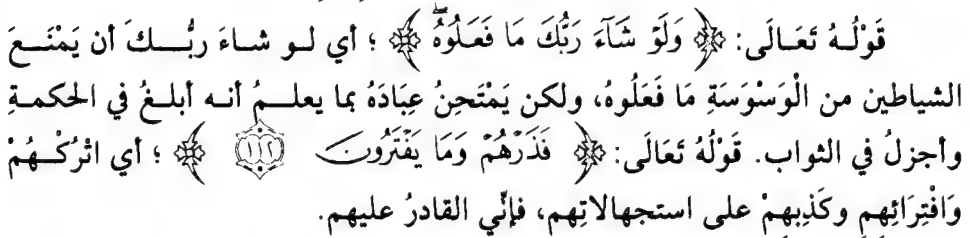 قَوْلُهُ تَعَالَى: ﴿ وَلَوْ شَآءَ رَبُّكَ مَا فَعَلُوهُۖ ﴾ ؛ أي لو شاءَ ربُّكَ أن يَمْنَعَ
الشياطين من الْوَسْوَسَةِ مَا فَعَلُوهُ، ولكن يَمْتَحِنُ عِبَادَهُ بما يعلمُ أنه أبلغُ في الحكمةِ
وأجزلُ في الثواب. قَوْلُهُ تَعَالَى: ﴿ فَذَرْهُمْ وَمَا يَفْتَرُونَ ١١٢ ﴾ ؛ أي اتْرُكْهُمْ
وَافْتِرَائِهِم وكَذِبِهمْ على استجهالاتِهم، فإنِّي القادرُ عليهم.